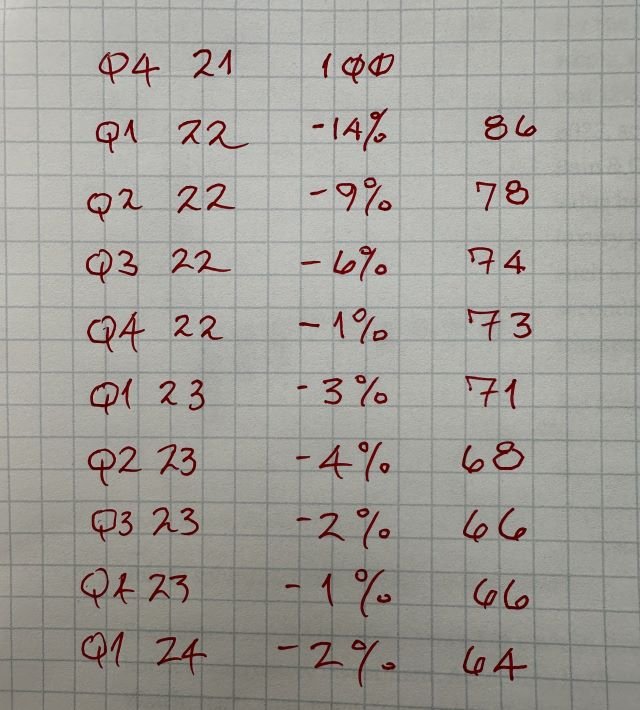 Q4 21 100
Q1 22 -14% 86
Q2 22 -9% 78
Q3 22 -6% 74
Q4 22 -1% 73
Q1 23 -3% 71
Q2 23 -4% 68
Q3 23 -2% 66
Q4 23 -1% 66
Q1 24 -2% 64